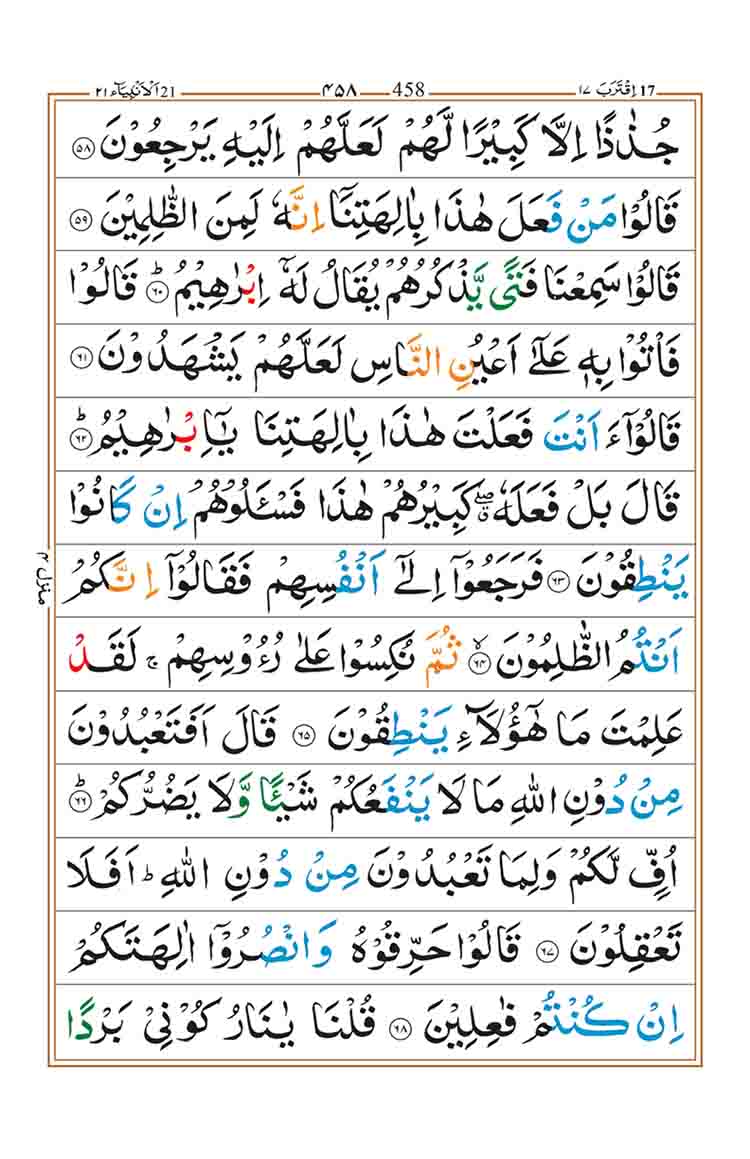 اِقْتَرَبَ ١٧ 17 ۴۵۸ 458 اَلْاَنْۢبِيَآء ٢١ 21
جُذٰذًا اِلَّا كَبِيْرًا لَّهُمْ لَعَلَّهُمْ اِلَيْهِ يَرْجِعُوْنَ ۵۸
قَالُوْا مَنْ فَعَلَ هٰذَا بِاٰلِهَتِنَاۤ اِنَّهٗ لَمِنَ الظّٰلِمِيْنَ ۵۹
قَالُوْا سَمِعْنَا فَتًى يَّذْكُرُهُمْ يُقَالُ لَهٗۤ اِبْرٰهِيْمُ ؕ ۶۰ قَالُوْا
فَاْتُوْا بِهٖ عَلٰۤى اَعْيُنِ النَّاسِ لَعَلَّهُمْ يَشْهَدُوْنَ ۶۱
قَالُوْۤا ءَ اَنْتَ فَعَلْتَ هٰذَا بِاٰلِهَتِنَا يٰۤاِبْرٰهِيْمُ ؕ ۶۲
قَالَ بَلْ فَعَلَهٗ ۖۗ كَبِيْرُهُمْ هٰذَا فَسْـَٔلُوْهُمْ اِنْ كَانُوْا
يَنْطِقُوْنَ ۶۳ فَرَجَعُوْۤا اِلٰۤى اَنْفُسِهِمْ فَقَالُوْۤا اِنَّكُمْ
اَنْتُمُ الظّٰلِمُوْنَ ۙ ۶۴ ثُمَّ نُكِسُوْا عَلٰى رُءُوْسِهِمْ ۚ لَقَدْ
عَلِمْتَ مَا هٰۤؤُلَآءِ يَنْطِقُوْنَ ۶۵ قَالَ اَفَتَعْبُدُوْنَ
مِنْ دُوْنِ اللّٰهِ مَا لَا يَنْفَعُكُمْ شَيْـًٔا وَّلَا يَضُرُّكُمْ ؕ ۶۶
اُفٍّ لَّكُمْ وَلِمَا تَعْبُدُوْنَ مِنْ دُوْنِ اللّٰهِ ؕ اَفَلَا
تَعْقِلُوْنَ ۶۷ قَالُوْا حَرِّقُوْهُ وَانْصُرُوْۤا اٰلِهَتَكُمْ
اِنْ كُنْتُمْ فٰعِلِيْنَ ۶۸ قُلْنَا يٰنَارُ كُوْنِيْ بَرْدًا
منزل ۴